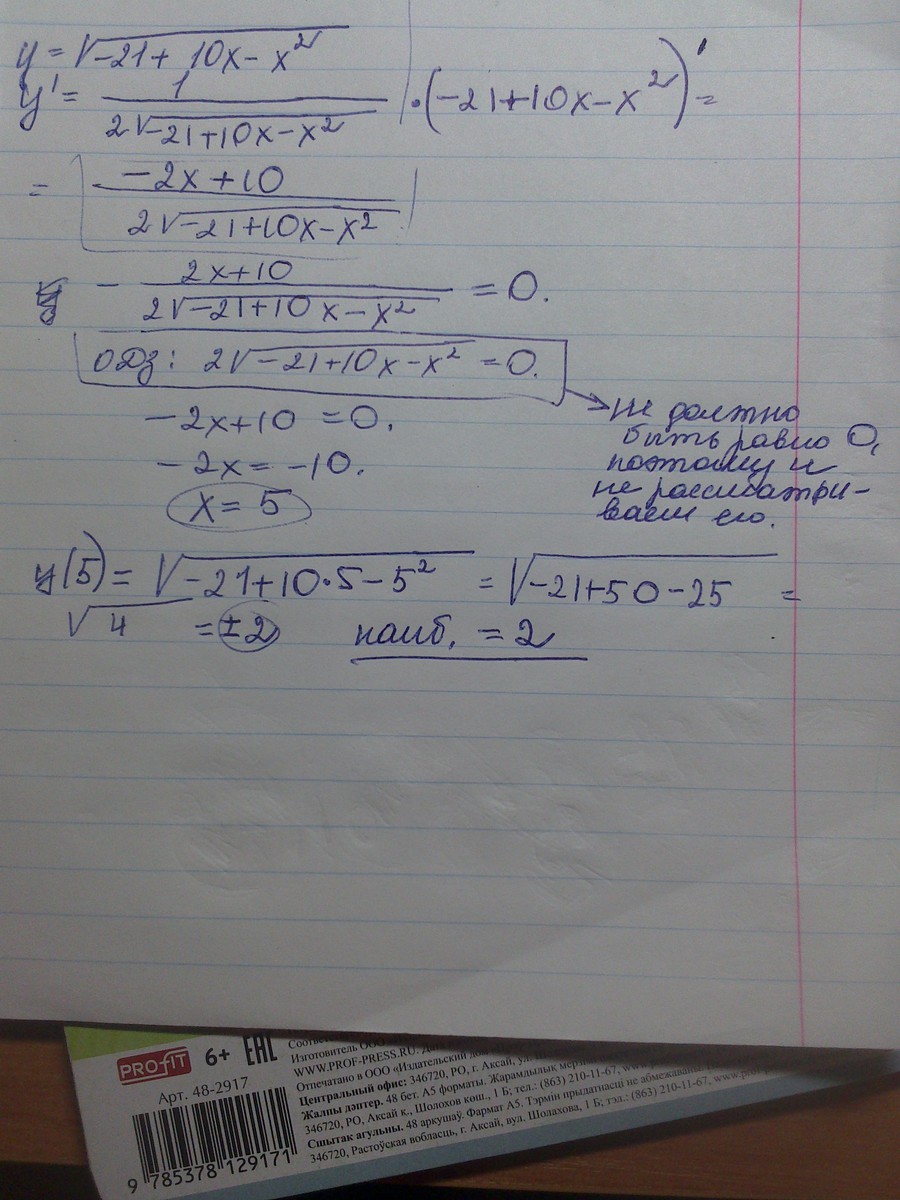 y = √-21 + 10x - x²
y' = 1 / 2√-21+10x-x² · (-21+10x-x²)' =
= -2x+10 / 2√-21+10x-x²
- 2x+10 / 2√-21+10x-x² = 0.
ОДЗ: 2√-21+10x-x² = 0.
не должно
быть равно 0,
поэтому и
не рассматри-
ваем его.
-2x+10 = 0.
-2x = -10.
x = 5
y(5) = √-21+10·5-5² = √-21+50-25 =
√4 = ±2 наиб. = 2
PROFIT 6+ EAC
Арт. 48-2917
9 785378 129171
Изготовитель ООО
WWW.PROF-PRESS.RU.
Отпечатано в ООО «Издательский дом
Центральный офис: 346720, РО, г. Аксай, ул.
Жалпы дәптер. 48 бет. А5 форматы. Жарамдылық
346720, РО, Аксай к., Шолохов көш., 1 Б; тел.: (863) 210-11-67,
Сшытак агульны. 48 аркушаў. Фармат А5. Тэрмін прыдатнасці не абмежаваны.
346720, Растоўская вобласць, г. Аксай, вул. Шолахова, 1 Б; тэл.: (863) 210-11-67,